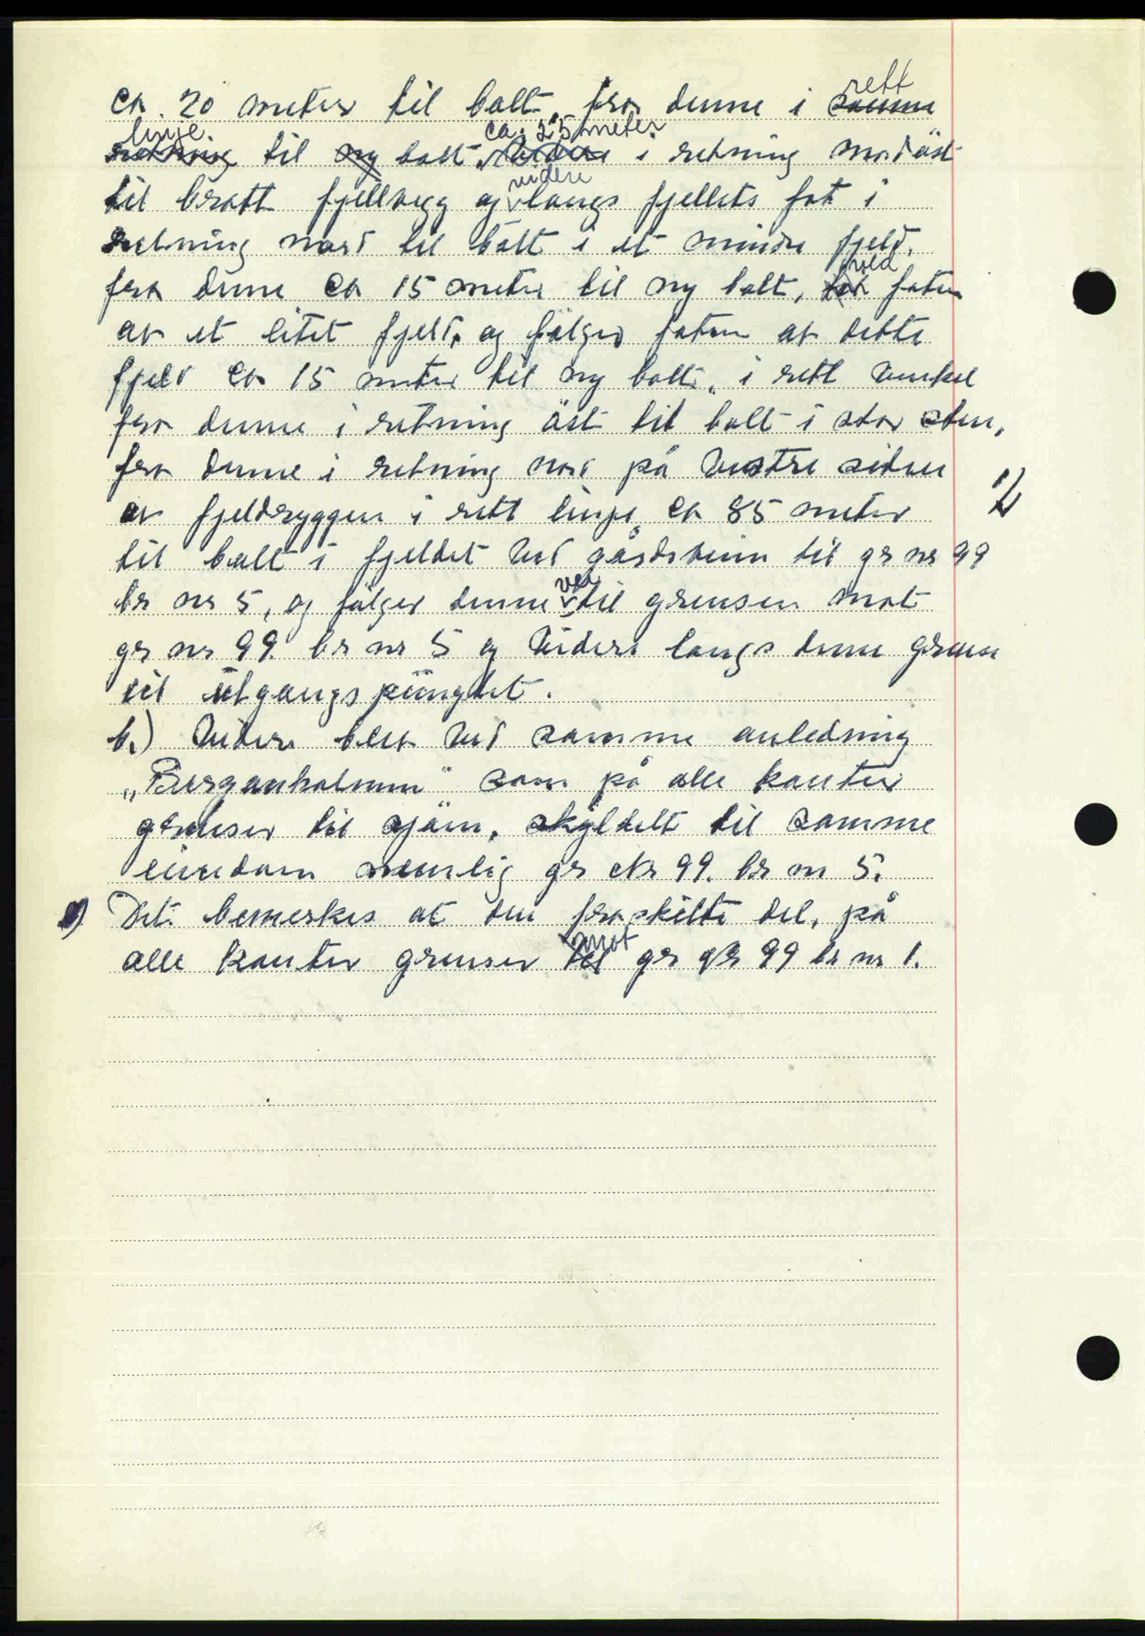 ca. 20 meter til bolt, fra denne i rett
linje til bolt. ca. 25 meter i retning nordöst
til bratt fjellvegg og videre langs fjellets fot i
retning nord til bolt i et mindre fjeld.
fra denne ca 15 meter til ny bolt, ved foten
av et litet fjeld, og følger foten av dette
fjeld ca 15 meter til ny bolt, i rett vinkel
fra denne i retning öst til bolt i stor sten,
fra denne i retning nord på vestre siden
av fjeldryggen i rett linje, ca 85 meter
til bolt i fjeldet ved gårdsveien til gr nr 99
br nr 5, og følger denne vei til grensen mot
gr nr 99. br nr 5 og videre langs denne grense
til utgangspunghtet.
b.) Videre blev ved samme anledning
„Berganholmen" som på alle kanter
grenser til sjøen, skyldelt til samme
eiendom nemlig gr nr 99. br nr 5.
Det bemerkes at den fraskilte del, på
alle kanter grenser mot gr nr 99 br nr 1.